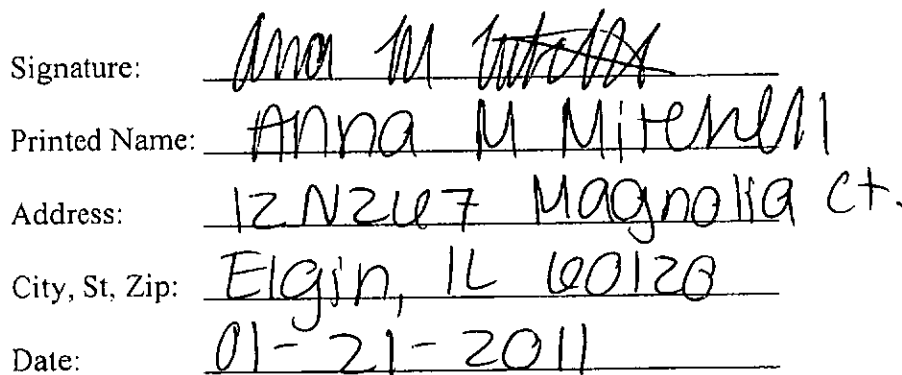 Signature: Anna M Mitchell
Printed Name: Anna M Mitchell
Address: 12N267 Magnolia Ct.
City, St, Zip: Elgin, IL 60120
Date: 01-21-2011